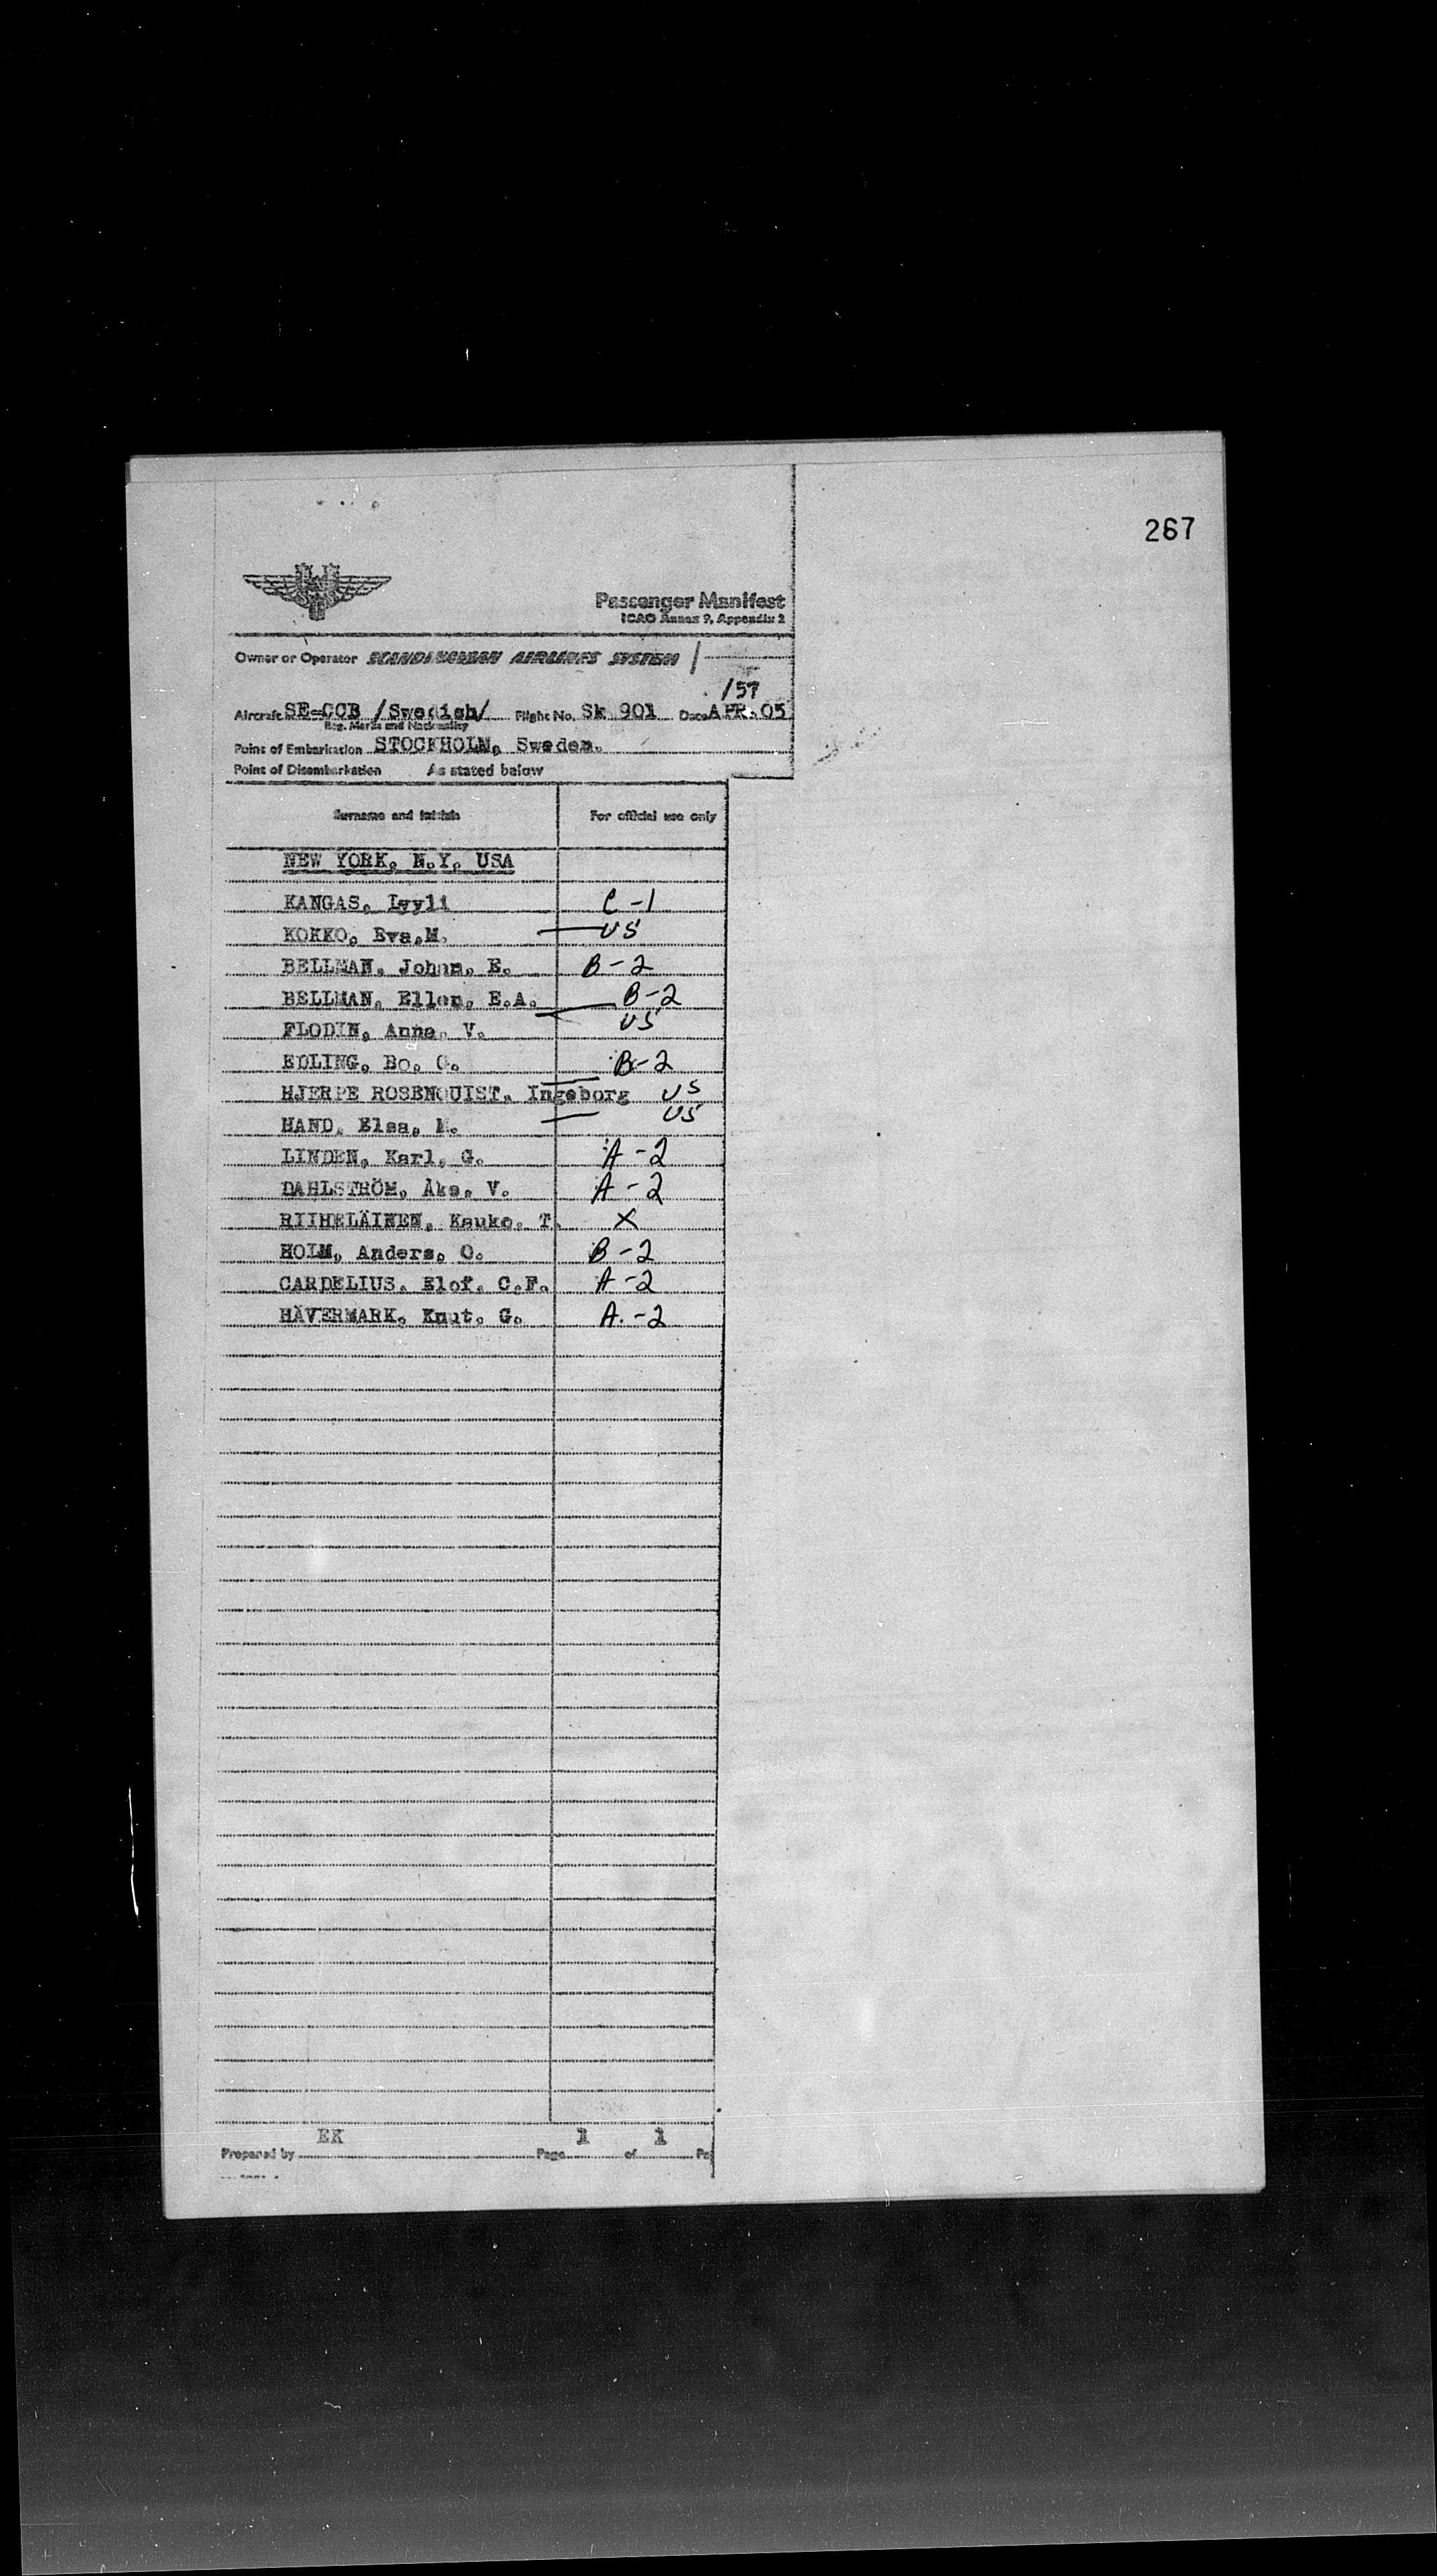 267
Passenger Manifest
ICAO Annex 9, Appendix 2
Owner or Operator SCANDINAVIAN AIRLINES SYSTEM
/57
Aircraft SE-CCB /Swedish/ Flight No. Sk 901 Date APR. 05
Reg. Marks and Nationality
Point of Embarkation STOCKHOLM, Sweden.
Point of Disembarkation As stated below
Surname and initials For official use only
NEW YORK, N.Y. USA
KANGAS, Lyyli C-1
KOKKO, Eva.M. US
BELLMAN, Johan, E. B-2
BELLMAN, Ellen, E.A. B-2
FLODIN, Anna, V. US
EDLING, Bo, G. B-2
HJERPE ROSENQUIST, Ingeborg US
HAND, Elsa, M. US
LINDEN, Karl, G. A-2
DAHLSTRÖM, Åke, V. A-2
RIIHELÄINEN, Kauko, T. X
HOLM, Anders, O. B-2
CARDELIUS, Elof, C.F. A-2
HÄVERMARK, Knut, G. A.-2
Prepared by EK Page 1 of 1 Pa